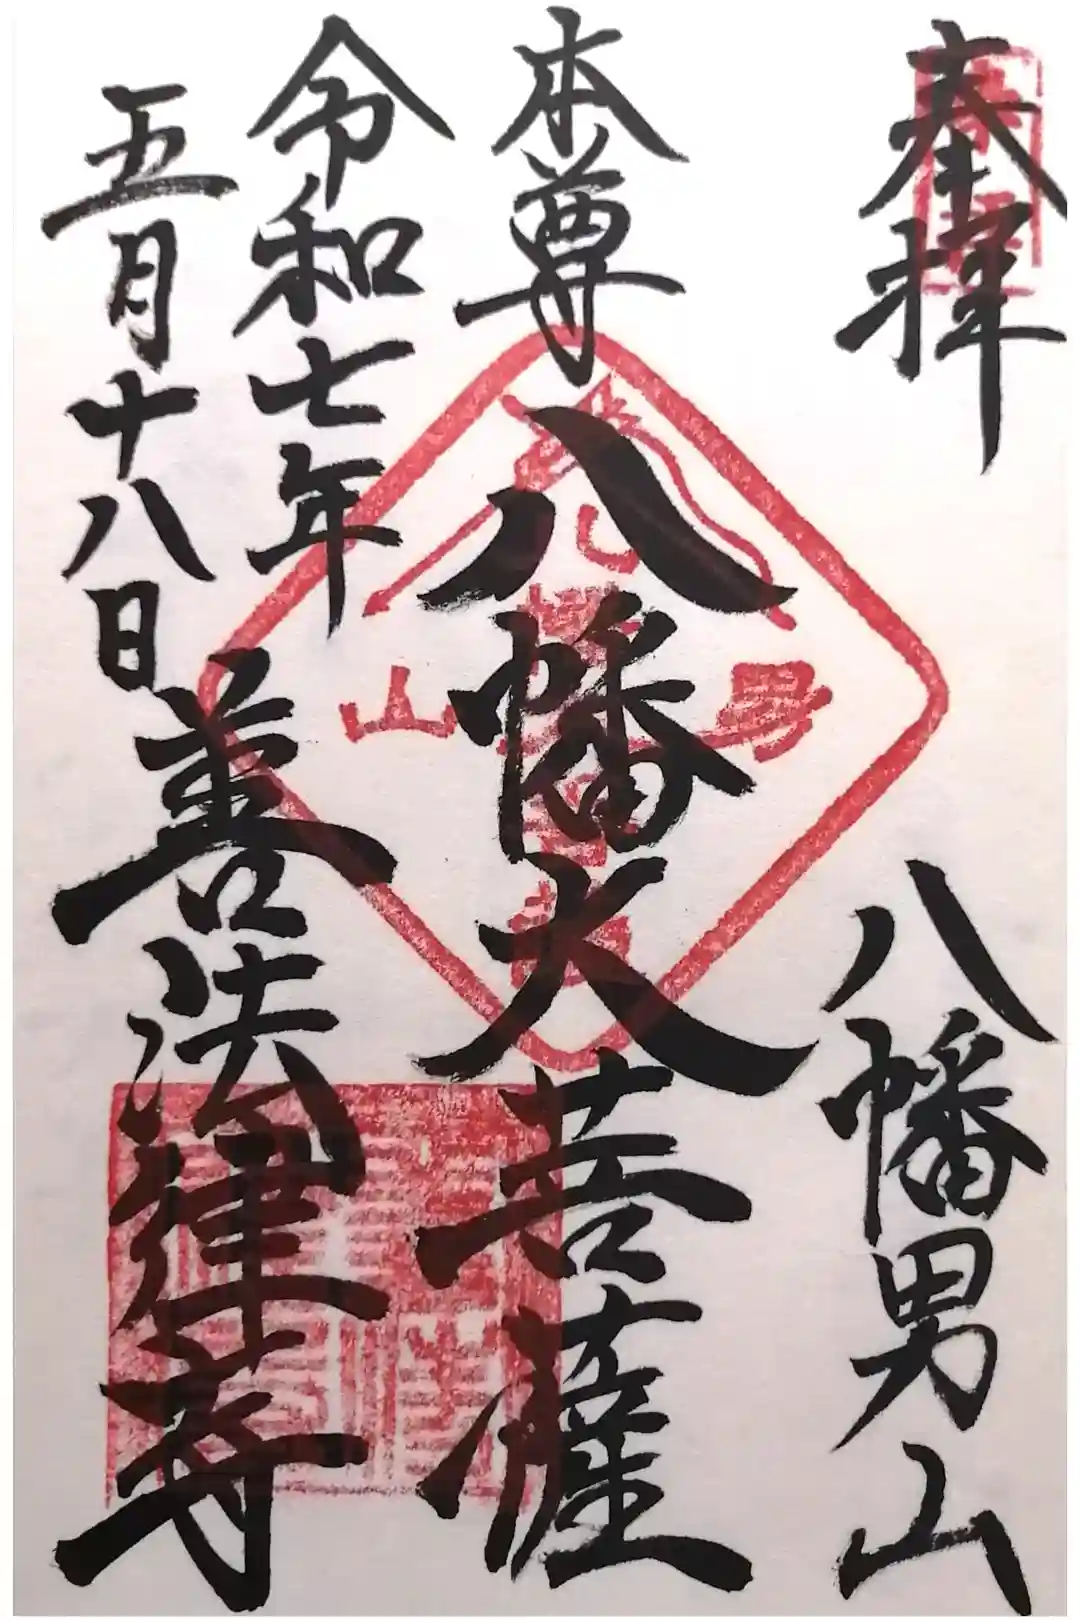 奉拝
八幡男山
本尊
八幡大菩薩
令和七年
五月十八日
善法律寺
男山